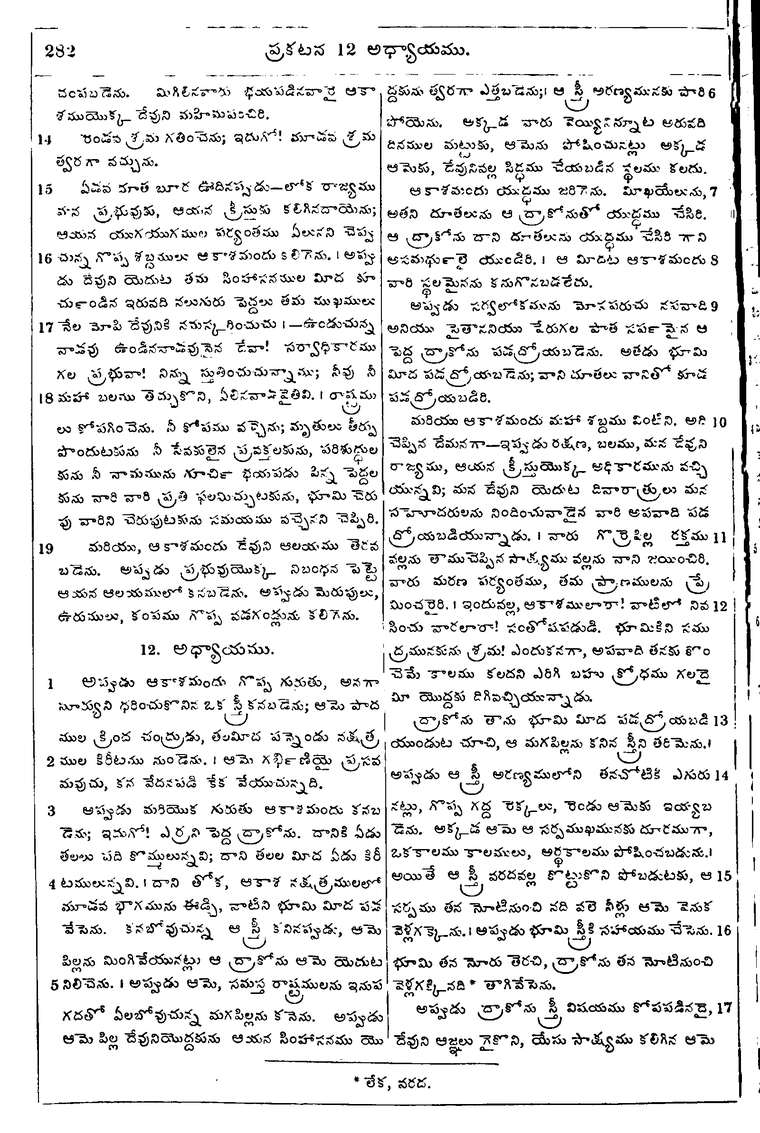 282
ప్రకటన 12 అధ్యాయము.
చంపబడెను. మిగిలినవారు భయపడినవారై ఆకా
శముయొక్క దేవుని మహిమపరచిరి.
14 రెండవ శ్రమ గతించెను; ఇదుగో! మూడవ శ్రమ
త్వరగా వచ్చును.
15 ఏడవ దూత బూర ఊదినప్పుడు—లోక రాజ్యము
మన ప్రభువుకు, ఆయన క్రీస్తుకు కలిగినదాయెను;
ఆయన యుగయుగముల పర్యంతము ఏలునని చెప్పు
16 చున్న గొప్ప శబ్దములు ఆకాశమందు కలిగెను. । అప్పు
డు దేవుని యెదుట తమ సింహాసనముల మీద కూ
చుండిన ఇరువది నలుగురు పెద్దలు తమ ముఖములు
17 నేల మోపి దేవునికి నమస్కరించుచు ।—ఉండుచున్న
వాడవు ఉండినవాడవునైన దేవా! సర్వాధికారము
గల ప్రభువా! నిన్ను స్తుతించుచున్నాము; నీవు నీ
18 మహా బలము తెచ్చుకొని, ఏలినవాడవైతివి. । రాష్ట్రము
లు కోపగించెను. నీ కోపము వచ్చెను; మృతులు తీర్పు
పొందుటకును నీ సేవకులైన ప్రవక్తలకును, పరిశుద్ధుల
కును నీ నామమును గూర్చి భయపడు పిన్న పెద్దల
కును వారి వారి ప్రతి ఫలమిచ్చుటకును, భూమి చెరు
పు వారిని చెరుపుటకును సమయము వచ్చెనని చెప్పిరి.
19 మరియు, ఆకాశమందు దేవుని ఆలయము తెరవ
బడెను. అప్పుడు ప్రభువుయొక్క నిబంధన పెట్టె
ఆయన ఆలయములో కనబడెను. అప్పుడు మెరుపులు,
ఉరుములు, కంపము గొప్ప వడగండ్లును కలిగెను.
12. అధ్యాయము.
1 అప్పుడు ఆకాశమందు గొప్ప గురుతు, అనగా
సూర్యుని ధరించుకొనిన ఒక స్త్రీ కనబడెను; ఆమె పాద
ముల క్రింద చంద్రుడు, తలమీద పన్నెండు నక్షత్ర
2 ముల కిరీటము నుండెను. । ఆమె గర్భిణియై ప్రసవ
మవుచు, కన వేదనపడి కేక వేయుచున్నది.
3 అప్పుడు మరియొక గురుతు ఆకాశమందు కనబ
డెను; ఇదుగో! ఎర్రని పెద్ద డ్రాకోను. దానికి ఏడు
తలలు పది కొమ్ములున్నవి; దాని తలల మీద ఏడు కిరీ
4 టములున్నవి. । దాని తోక, ఆకాశ నక్షత్రములలో
మూడవ భాగమును ఈడ్చి, వాటిని భూమి మీద పడ
వేసెను. కనబోవుచున్న ఆ స్త్రీ కనినప్పుడు, ఆమె
పిల్లను మింగివేయునట్లు ఆ డ్రాకోను ఆమె యెదుట
5 నిలిచెను. । అప్పుడు ఆమె, సమస్త రాష్ట్రములను ఇనుప
గదతో ఏలబోవుచున్న మగపిల్లను కనెను. అప్పుడు
ఆమె పిల్ల దేవునియొద్దకును ఆయన సింహాసనము యొ
ద్దకును త్వరగా ఎత్తబడెను;। ఆ స్త్రీ అరణ్యమునకు పారి 6
పోయెను. అక్కడ వారు వెయ్యిన్నూట అరువది
దినముల మట్టుకు, ఆమెను పోషించునట్లు అక్కడ
ఆమెకు, దేవునివల్ల సిద్ధము చేయబడిన స్థలము కలదు.
ఆకాశమందు యుద్ధము జరిగెను. మిఖయేలును, 7
అతని దూతలును ఆ డ్రాకోనుతో యుద్ధము చేసిరి.
ఆ డ్రాకోను దాని దూతలును యుద్ధము చేసిరి గాని
అసమర్థులై యుండిరి. । ఆ మీదట ఆకాశమందు 8
వారి స్థలమైనను కనుగొనబడలేదు.
అప్పుడు సర్వలోకమును మోసపరుచు నపవాది 9
అనియు సైతాననియు పేరుగల పాత సర్పమైన ఆ
పెద్ద డ్రాకోను పడద్రోయబడెను. అతడు భూమి
మీద పడద్రోయబడెను; వాని దూతలు వానితో కూడ
పడద్రోయబడిరి.
మరియు ఆకాశమందు మహా శబ్దము వింటిని. అది 10
చెప్పిన దేమనగా—ఇప్పుడు రక్షణ, బలము, మన దేవుని
రాజ్యము, ఆయన క్రీస్తుయొక్క అధికారమును వచ్చి
యున్నవి; మన దేవుని యెదుట దివారాత్రులు మన
సహోదరులను నిందించువాడైన వారి అపవాది పడ
ద్రోయబడియున్నాడు. । వారు గొర్రెపిల్ల రక్తము 11
వల్లను తాముచెప్పిన సాక్ష్యము వల్లను వాని జయించిరి.
వారు మరణ పర్యంతము, తమ ప్రాణములను ప్రే
మించరైరి. । ఇందువల్ల, ఆకాశములారా! వాటిలో నివ 12
సించు వారలారా! సంతోషపడుడి. భూమికిని సము
ద్రమునకును శ్రమ! ఎందుకనగా, అపవాది తనకు కొం
చెమే కాలము కలదని ఎరిగి బహు క్రోధము గలదై
మీ యొద్దకు దిగివచ్చియున్నాడు.
డ్రాకోను తాను భూమి మీద పడద్రోయబడి 13
యుండుట చూచి, ఆ మగపిల్లను కనిన స్త్రీని తరిమెను.।
అప్పుడు ఆ స్త్రీ అరణ్యములోని తనచోటికి ఎగురు 14
నట్లు, గొప్ప గద్ద రెక్కలు, రెండు ఆమెకు ఇయ్యబ
డెను. అక్కడ ఆమె ఆ సర్పముఖమునకు దూరముగా,
ఒకకాలము కాలములు, అర్థకాలము పోషించబడును.।
అయితే ఆ స్త్రీ వరదవల్ల కొట్టుకొని పోబడుటకు, ఆ 15
సర్పము తన నోటినుంచి నది వలె నీళ్లు ఆమె వెనుక
వెళ్లగక్కెను. । అప్పుడు భూమి స్త్రీకి సహాయము చేసెను. 16
భూమి తన నోరు తెరచి, డ్రాకోను తన నోటినుంచి
వెళ్లగక్కిన నది * తాగివేసెను.
అప్పుడు డ్రాకోను స్త్రీ విషయము కోపపడినదై, 17
దేవుని ఆజ్ఞలు గైకొని, యేసు సాక్ష్యము కలిగిన ఆమె
* లేక, వరద.